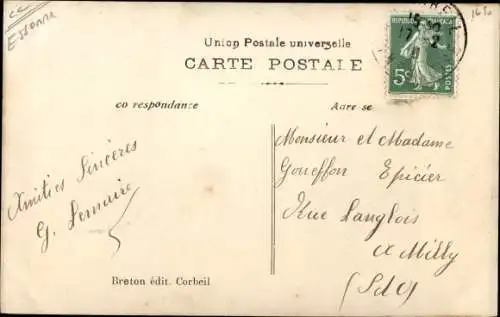 Essonne
Union Postale universelle
CARTE POSTALE
co respondance
Adre se
REPUBLIQUE FRANÇAISE
5c
POSTES
17 2
Amitiés Sincères
G. Lemaire
Monsieur et Madame
Goueffon Epicier
Rue Langlois
a Milly
(S d O)
Breton édit. Corbeil